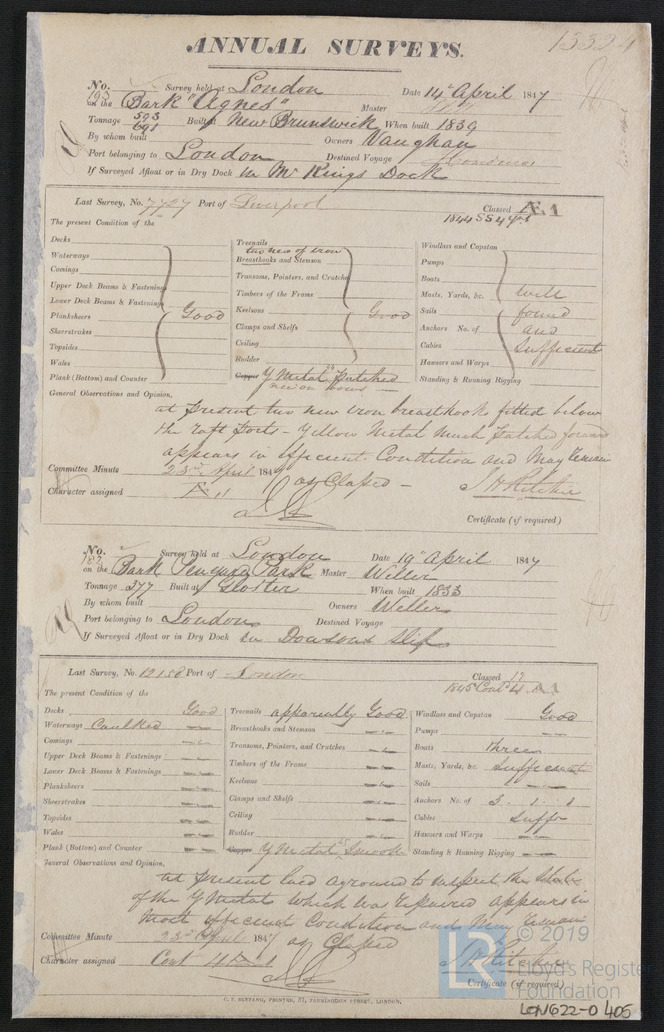 13324
ANNUAL SURVEYS.
No. 193 Survey held at London Date 14th April 1847
on the Bark "Agnes" Master
Tonnage 593 691 Built at New Brunswick When built 1839
By whom built Owners Vaughan
Port belonging to London Destined Voyage
If Surveyed Afloat or in Dry Dock In Mr Kings Dock
Last Survey, No. 7727 Port of Liverpool Classed Æ1
1844 SS 4 yrs
The present Condition of the
Decks
Waterways
Comings
Upper Deck Beams & Fastenings
Lower Deck Beams & Fastenings
Planksheers Good
Sheerstrakes
Topsides
Wales
Plank (Bottom) and Counter
Treenails
two new of iron
Breasthooks and Stemson
Transoms, Pointers, and Crutches
Timbers of the Frame
Keelsons Good
Clamps and Shelfs
Ceiling
Rudder
Copper Y Metal Patched
new on bows
Windlass and Capstan
Pumps
Boats
Masts, Yards, &c. well
Sails found
Anchors No. of and
Cables Sufficient
Hawsers and Warps
Standing & Running Rigging
General Observations and Opinion,
at present two new iron breasthooks fitted below
the raft ports - Yellow Metal much patched forward
appears in efficient Condition and May Remain
as Classed -
Committee Minute 23rd April 1847
Character assigned Æ 1
J H Ritchie
Certificate (if required)
No. 182 Survey held at London Date 19th April 1847
on the Bark Penyard Park Master Weller
Tonnage 377 Built at Gloster When built 1833
By whom built Owners Weller
Port belonging to London Destined Voyage
If Surveyed Afloat or in Dry Dock On Dowsons Slip
Last Survey, No. 12156 Port of London Classed 12
1845 Cont 4 A1
The present Condition of the
Decks Good
Waterways Caulked
Comings
Upper Deck Beams & Fastenings
Lower Deck Beams & Fastenings
Planksheers
Sheerstrakes
Topsides
Wales
Plank (Bottom) and Counter
Treenails apparently Good
Breasthooks and Stemson
Transoms, Pointers, and Crutches
Timbers of the Frame
Keelsons
Clamps and Shelfs
Ceiling
Rudder
Copper Y Metal Smooth
Windlass and Capstan Good
Pumps
Boats three
Masts, Yards, &c. sufficient
Sails
Anchors No. of 3 . 1 . 1
Cables Sufft
Hawsers and Warps
Standing & Running Rigging
General Observations and Opinion,
at present laid aground to inspect the state
of the Y Metal which was repaired appears in
most efficient Condition and May Remain
as Classed
Committee Minute 23rd April 1847
Character assigned Cont 4 A 1
J H Ritchie
Certificate (if required)
C. F. SEYFANG, PRINTER, 57, FARRINGDON STREET, LONDON.
LR © 2019
Lloyd's Register
Foundation
LON622-0405